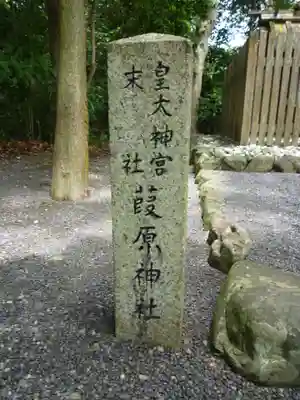 皇大神宮
末社
葭原神社